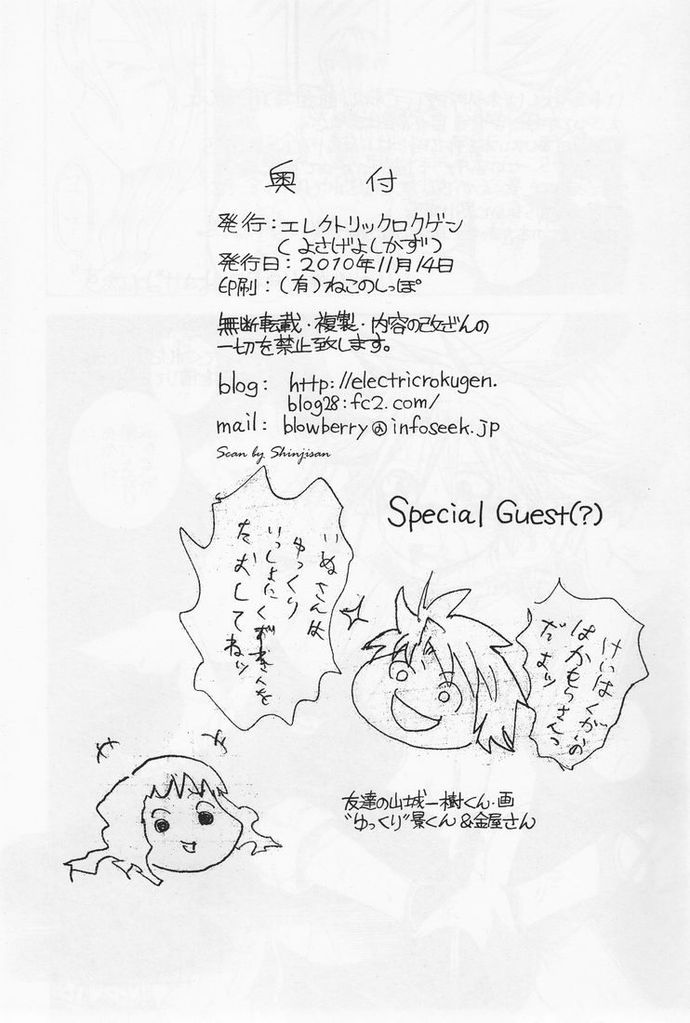 奥付
発行：エレクトリックロクゲン
（よさげよしかず）
発行日：2010年11月14日
印刷：（有）ねこのしっぽ
無断転載・複製・内容の改ざんの
一切を禁止致します。
blog: http://electricrokugen.
blog28:fc2.com/
mail: blowberry@infoseek.jp
Scan by Shinjisan
Special Guest(?)
けいはくがいの
はかもりさんっ
だよッ
いぬさんは
ゆっくり
いっしょにくがきんを
たおしてねッ
友達の山城一樹くん・画
"ゆっくり"景くん&金屋さん